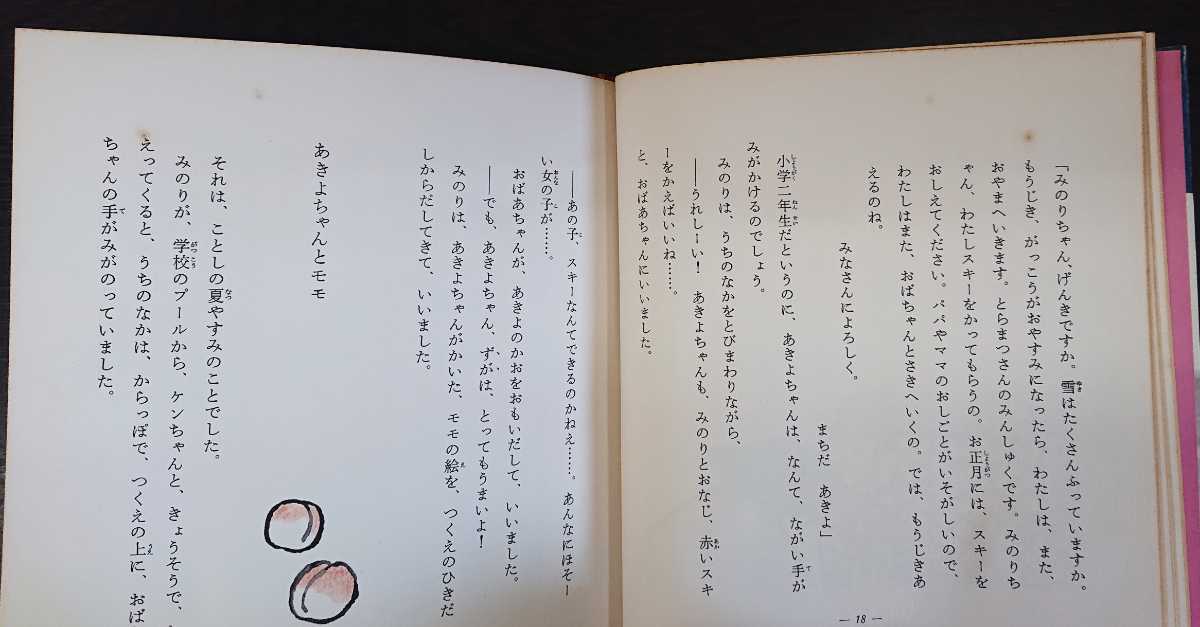 「みのりちゃん、げんきですか。雪はたくさんふっていますか。
もうじき、がっこうがおやすみになったら、わたしは、また、
おやまへいきます。とらまつさんのみんしゅくです。みのりち
ゃん、わたしスキーをかってもらうの。お正月には、スキーを
おしえてください。パパやママのおしごとがいそがしいので、
わたしはまた、おばちゃんとさきへいくの。では、もうじきあ
えるのね。
みなさんによろしく。
まちだ　あきよ」
小学二年生だというのに、あきよちゃんは、なんて、ながい手が
みがかけるのでしょう。
みのりは、うちのなかをとびまわりながら、
――うれしーい！　あきよちゃんも、みのりとおなじ、赤いスキ
ーをかえばいいね……。
と、おばあちゃんにいいました。
― 18 ―
――あの子、スキーなんてできるのかねえ……。あんなにほそー
い女の子が……。
おばあちゃんが、あきよのかおをおもいだして、いいました。
――でも、あきよちゃん、ずがは、とってもうまいよ！
みのりは、あきよちゃんがかいた、モモの絵を、つくえのひきだ
しからだしてきて、いいました。
あきよちゃんとモモ
それは、ことしの夏やすみのことでした。
みのりが、学校のプールから、ケンちゃんと、きょうそうで、
えってくると、うちのなかは、からっぽで、つくえの上に、おば
ちゃんの手がみがのっていました。